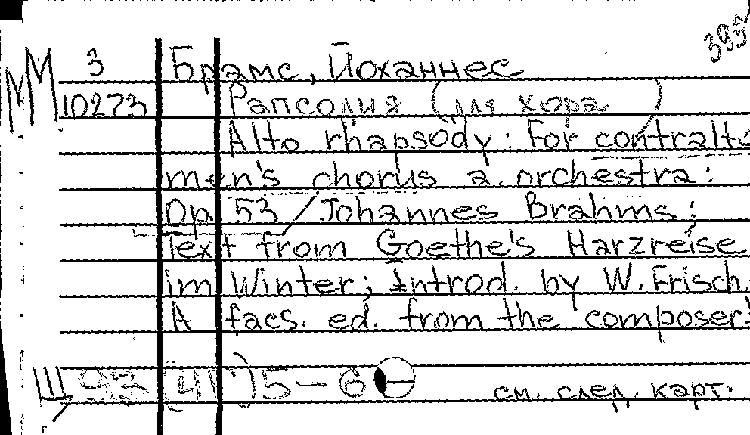 393
3 Брамс, Йоханнес
ММ 10273 Рапсодия (для хора)
Alto rhapsody: For contralto
men's chorus a. orchestra:
Op 53 / Johannes Brahms;
Text from Goethe's Harzreise
im Winter; Introd. by W. Frisch.
A facs. ed. from the composer'
Ш 93 (4Г) 5-6
см. след. карт.